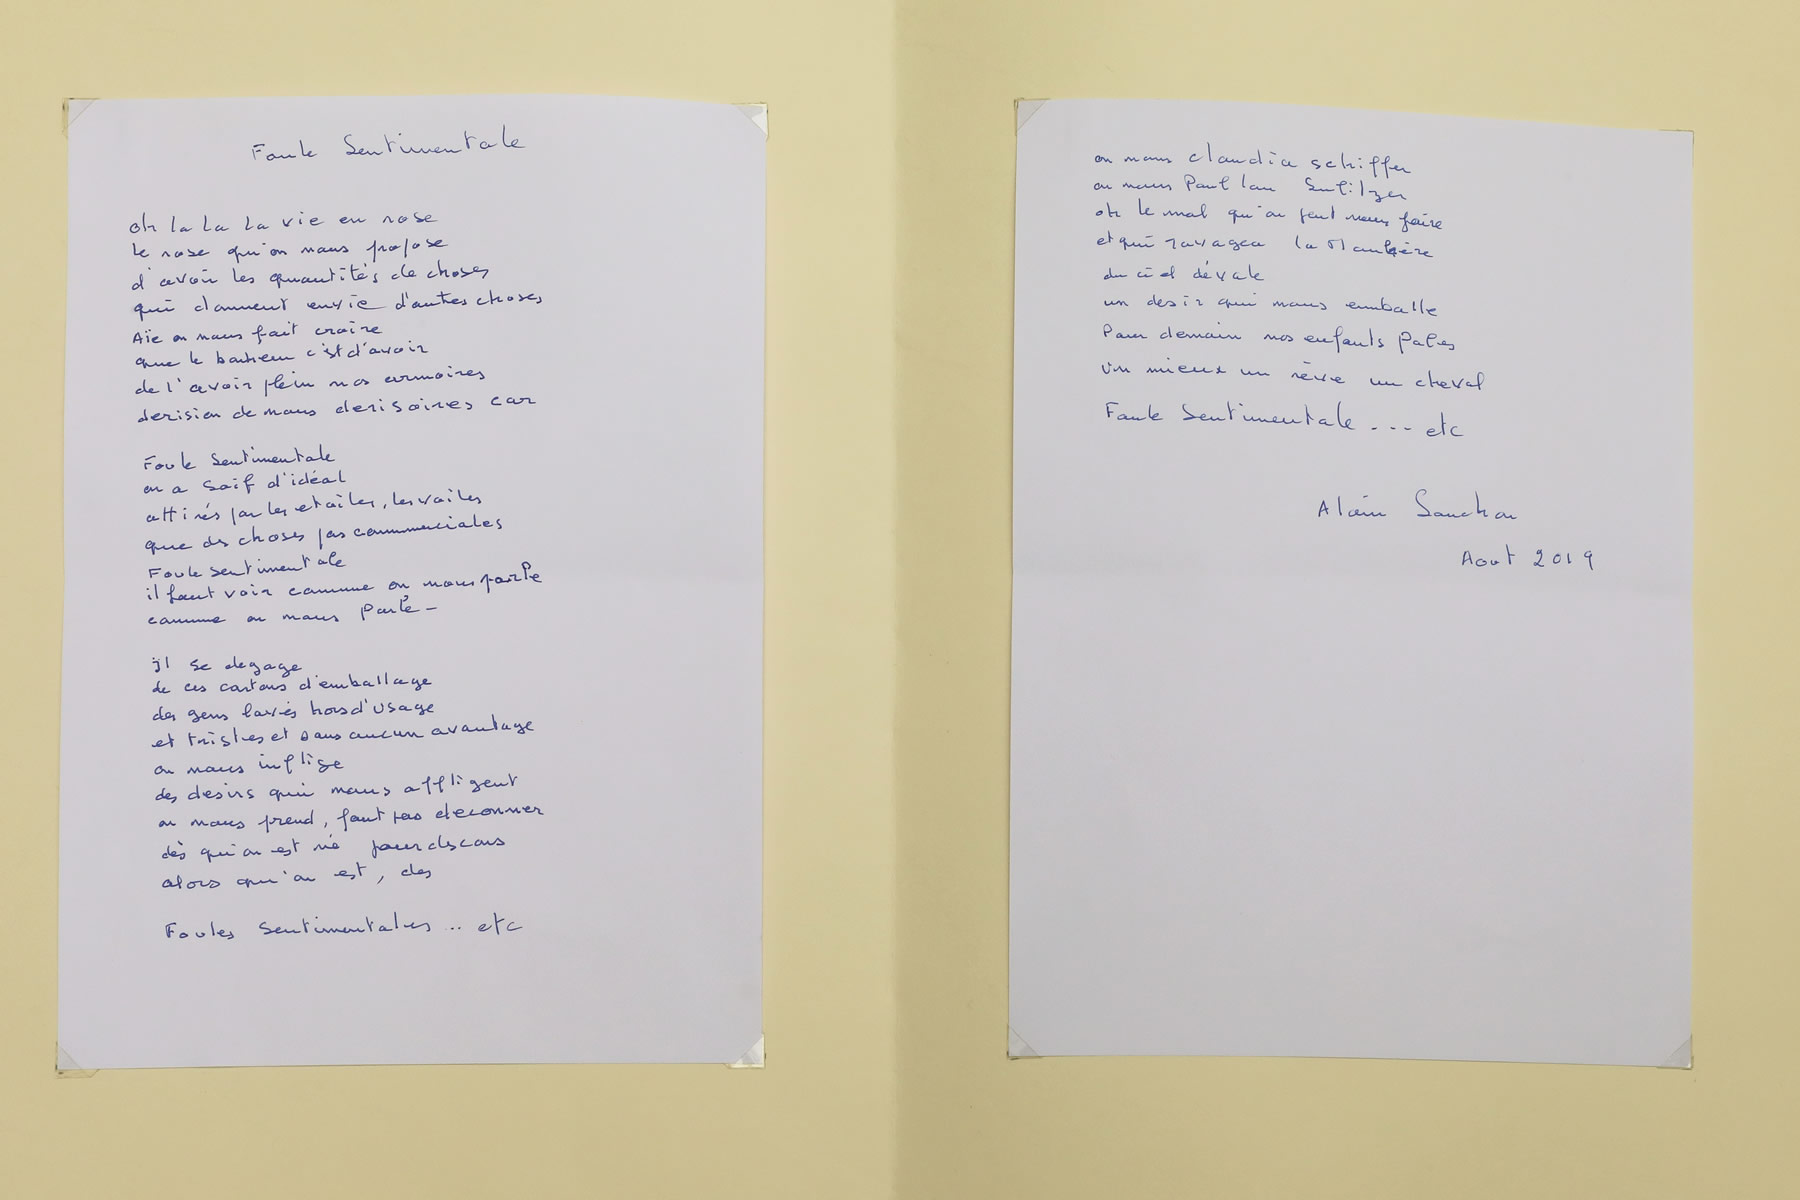 Foule Sentimentale
oh la la la vie en rose
le rose qu'on nous propose
d'avoir les quantités de choses
qui donnent envie d'autres choses
Aïe on nous fait croire
que le bonheur c'est d'avoir
de l'avoir plein nos armoires
derision de nous derisoires car
Foule Sentimentale
on a soif d'idéal
attirés par les etoiles, les voiles
que des choses pas commerciales
Foule sentimentale
il faut voir comme on nous parle
comme on nous parle –
il se degage
de ces cartons d'emballage
des gens lavés hors d'usage
et tristes et sans aucun avantage
on nous inflige
des desirs qui nous affligent
on nous prend, faut pas deconner
dès qu'on est né pour des cons
alors qu'on est, des
Foules Sentimentales ... etc
on nous claudia schiffer
on nous Paul lou Sulitzer
oh le mal qu'on peut nous faire
et qui ravagea la Moukère
du ciel dévale
un desir qui nous emballe
Pour demain nos enfants Pales
un mieux un rêve un cheval
Foule Sentimentale ... etc
Alain Souchon
Aout 2019